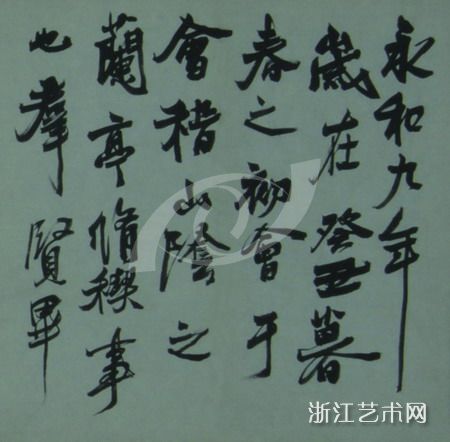 永和九年
歲在癸丑暮
春之初會于
會稽山陰之
蘭亭脩稧事
也羣賢畢
浙江艺术网